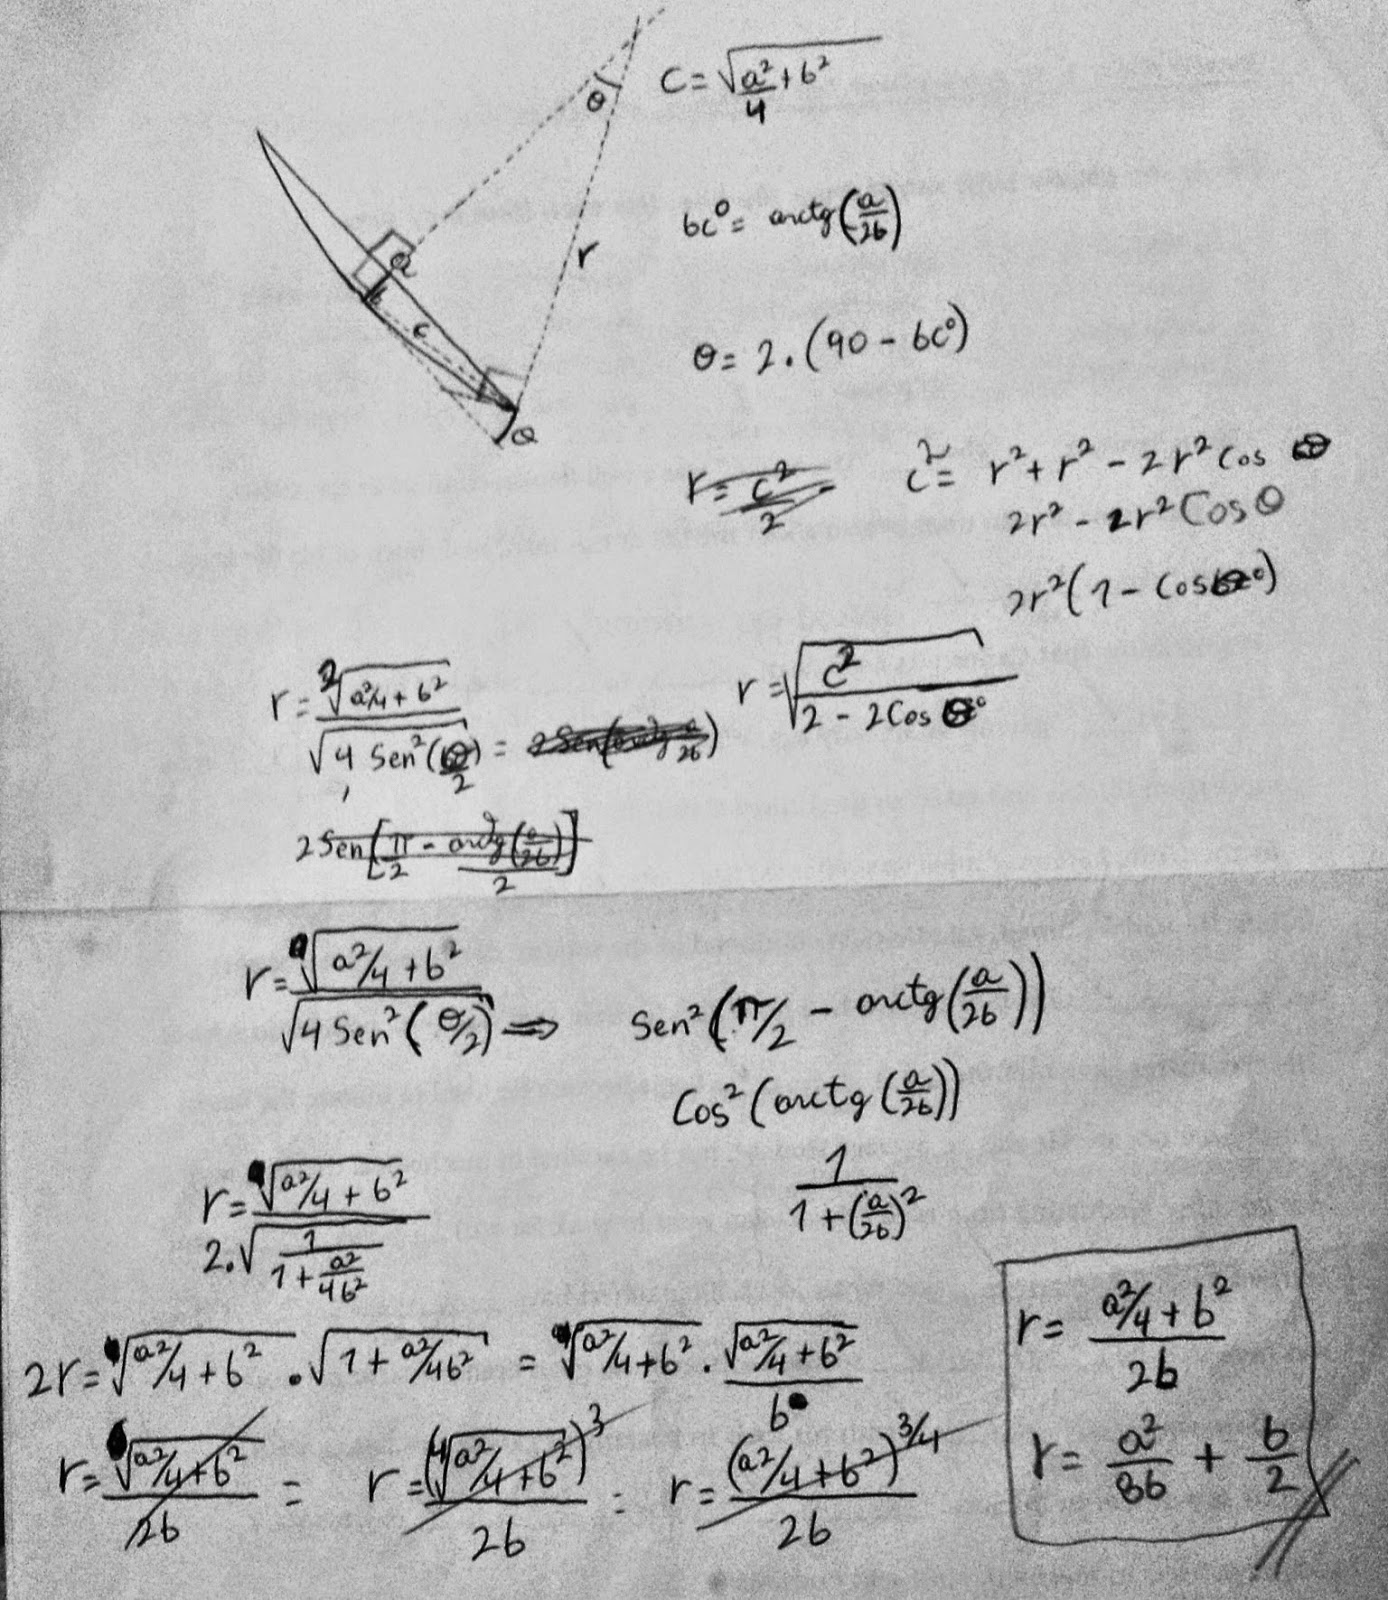 C = √(a²/4 + b²)
θ
bc° = arctg(a/2b)
r
a
b
c
θ = 2.(90 - bc°)
θ
r = c²/2
c² = r² + r² - 2r² Cos θ
2r² - 2r² Cos θ
2r²(1 - Cos θ°)
r = √(c²/(2 - 2Cos θ°))
r = ²√(a²/4 + b²) / √(4 Sen²(θ/2)) = 2 Sen(arctg a/2b)
2 Sen[π/2 - arctg(a/2b)/2]
r = √(a²/4 + b²) / √(4 Sen²(θ/2)) ⇒ Sen²(π/2 - arctg(a/2b))
Cos²(arctg(a/2b))
1/(1 + (a/2b)²)
r = √(a²/4 + b²) / 2.√(1/(1 + a²/4b²))
2r = √(a²/4 + b²) . √(1 + a²/4b²) = √(a²/4 + b²) . √(a²/4 + b²)/b
r = √(a²/4 + b²)/2b = r = (⁴√(a²/4 + b²))³/2b = r = (a²/4 + b²)^3/4/2b
r = (a²/4 + b²)/2b
r = a²/8b + b/2